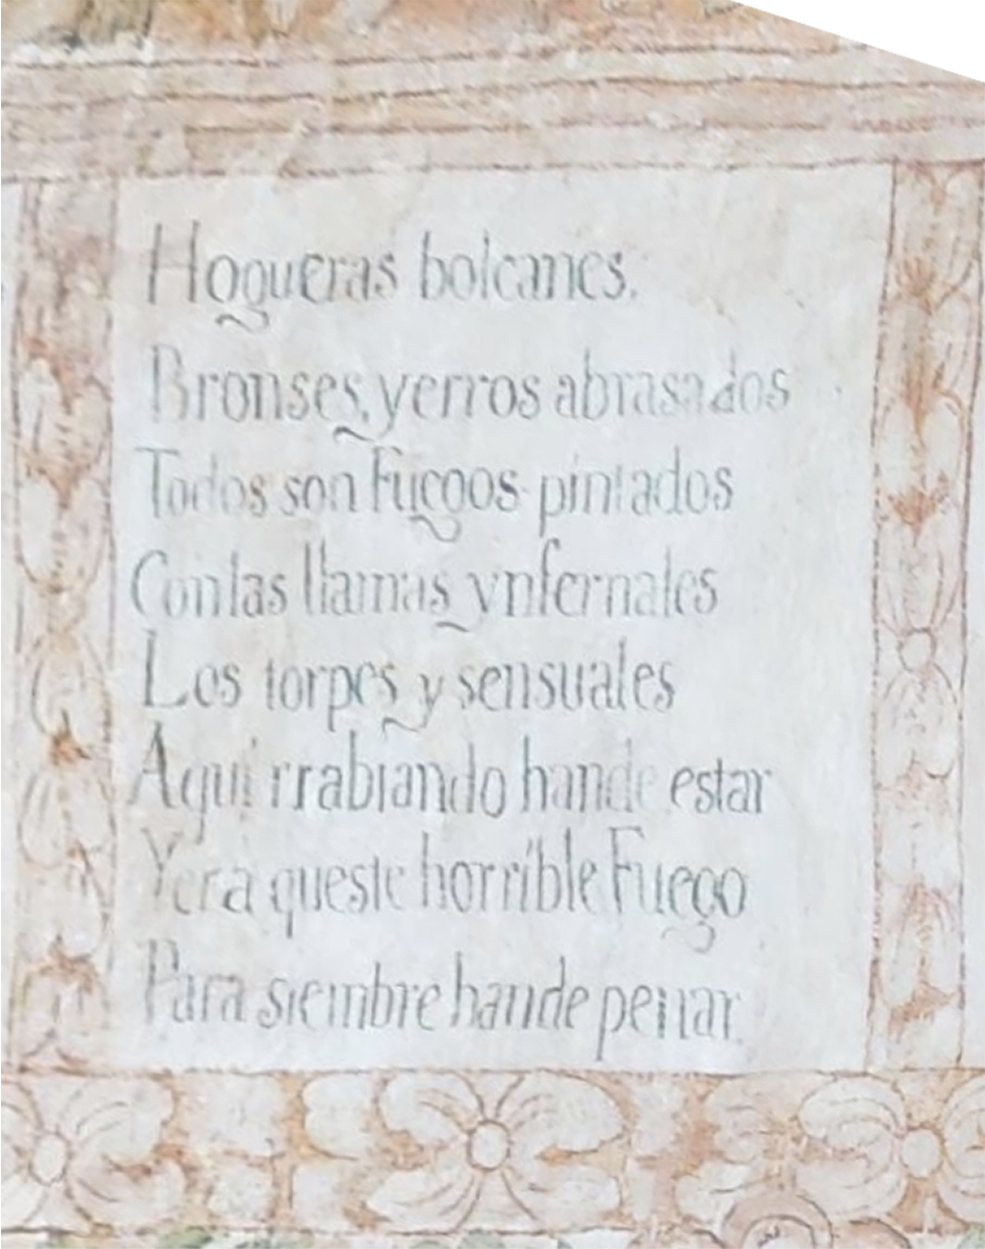 Hogueras bolcanes.
Bronses, yerros abrasados
Todos son Fuegos pintados
Con las llamas ynfernales
Los torpes y sensuales
Aqui rrabiando hande estar
Y en a queste horrible Fuego
Para siembre hande penar.